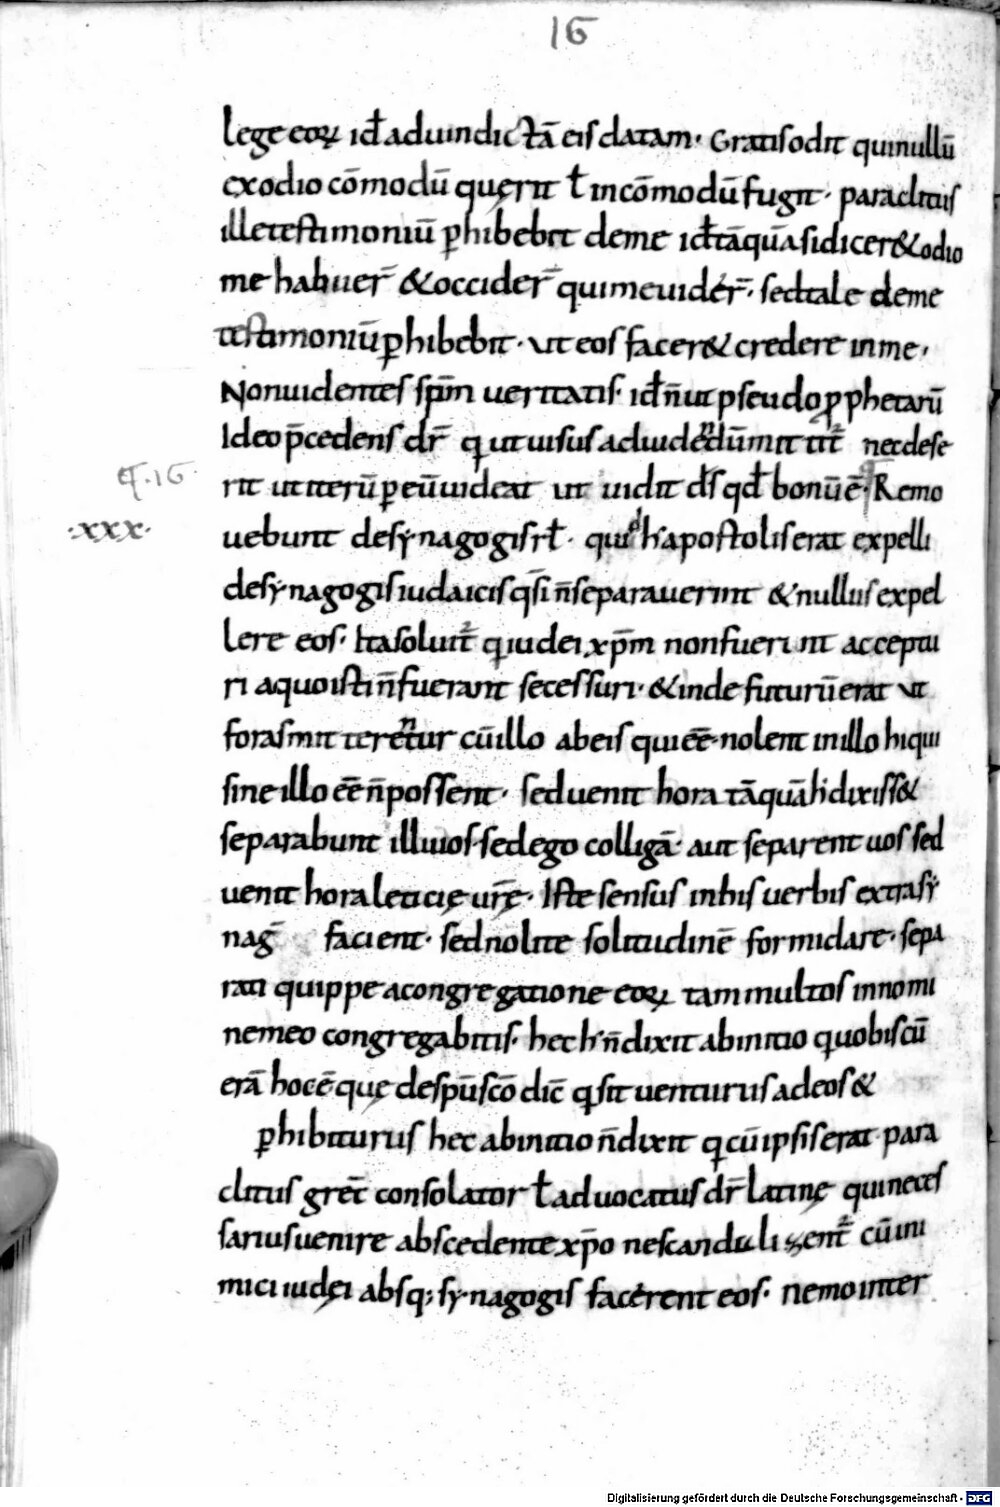 16
lege eoꝝ id̄ aduindictā eis datam· Gratis odit quinullū
exodio cōmodū quęrit ł incōmodū fugit· paraclitus
ille testimoniū ꝑhibebit deme id̄ tāquā sidicer& odio
me habuer̄ & occider̄ qui me uidér̄· sed tale deme
testimoniū ꝑhibebit· ut eos facer& credere in me·
Non uidentes sp̄m ueritatis· id̄ n̄ ut pseudo ꝓphetarū
Ideo p̄cedens dr̄ q ut uisus ad uidendū mittit᷑ nec dese
rit ut iterū ꝑ eū uideat ut uidit d̄s qd̄ bonū ē· Remo
¶·16
·xxx·
uebunt de sẏnagogis rł· quid h apostolis erat expelli
de sẏnagogis iudaicis q̄si n̄ separauerint & nullus expel
lere eos· Ita soluit᷑ q iudei xp̄m non fuerint acceptu
ri a quo isti n̄ fuerant secessuri· & inde futurū erat ut
foras mitterentur cū illo abeis qui eē nolent in illo hi qui
sine illo eē n̄ possent· sed uenit hora tāquā h dixiss&
separabunt illi uos· sed ego colligā· aut separent uos sed
uenit hora leticię ur̄ę· Iste sensus in his uerbis extra sẏ
nag̅ facient· sed nolite solitudinē formidare· sepa
rati quippe a congregatione eoꝝ tam multos in nomi
ne meo congregabitis· hec h n̄ dixit ab initio q uobiscū
erā hoc ē que de sp̄u sc̄o dic̄ q sit uenturus ad eos &
ꝑhibiturus hec ab initio n̄ dixit q cū ipsis erat· para
clitus grec̄ consolator ł aduocatus dr̄ latinę qui neces
sarius uenire abscedente xp̄o ne scandalizent᷑ cū ini
mici iudęi absq; sẏnagogis facérent eos· nemo inter
Digitalisierung gefördert durch die Deutsche Forschungsgemeinschaft - DFG